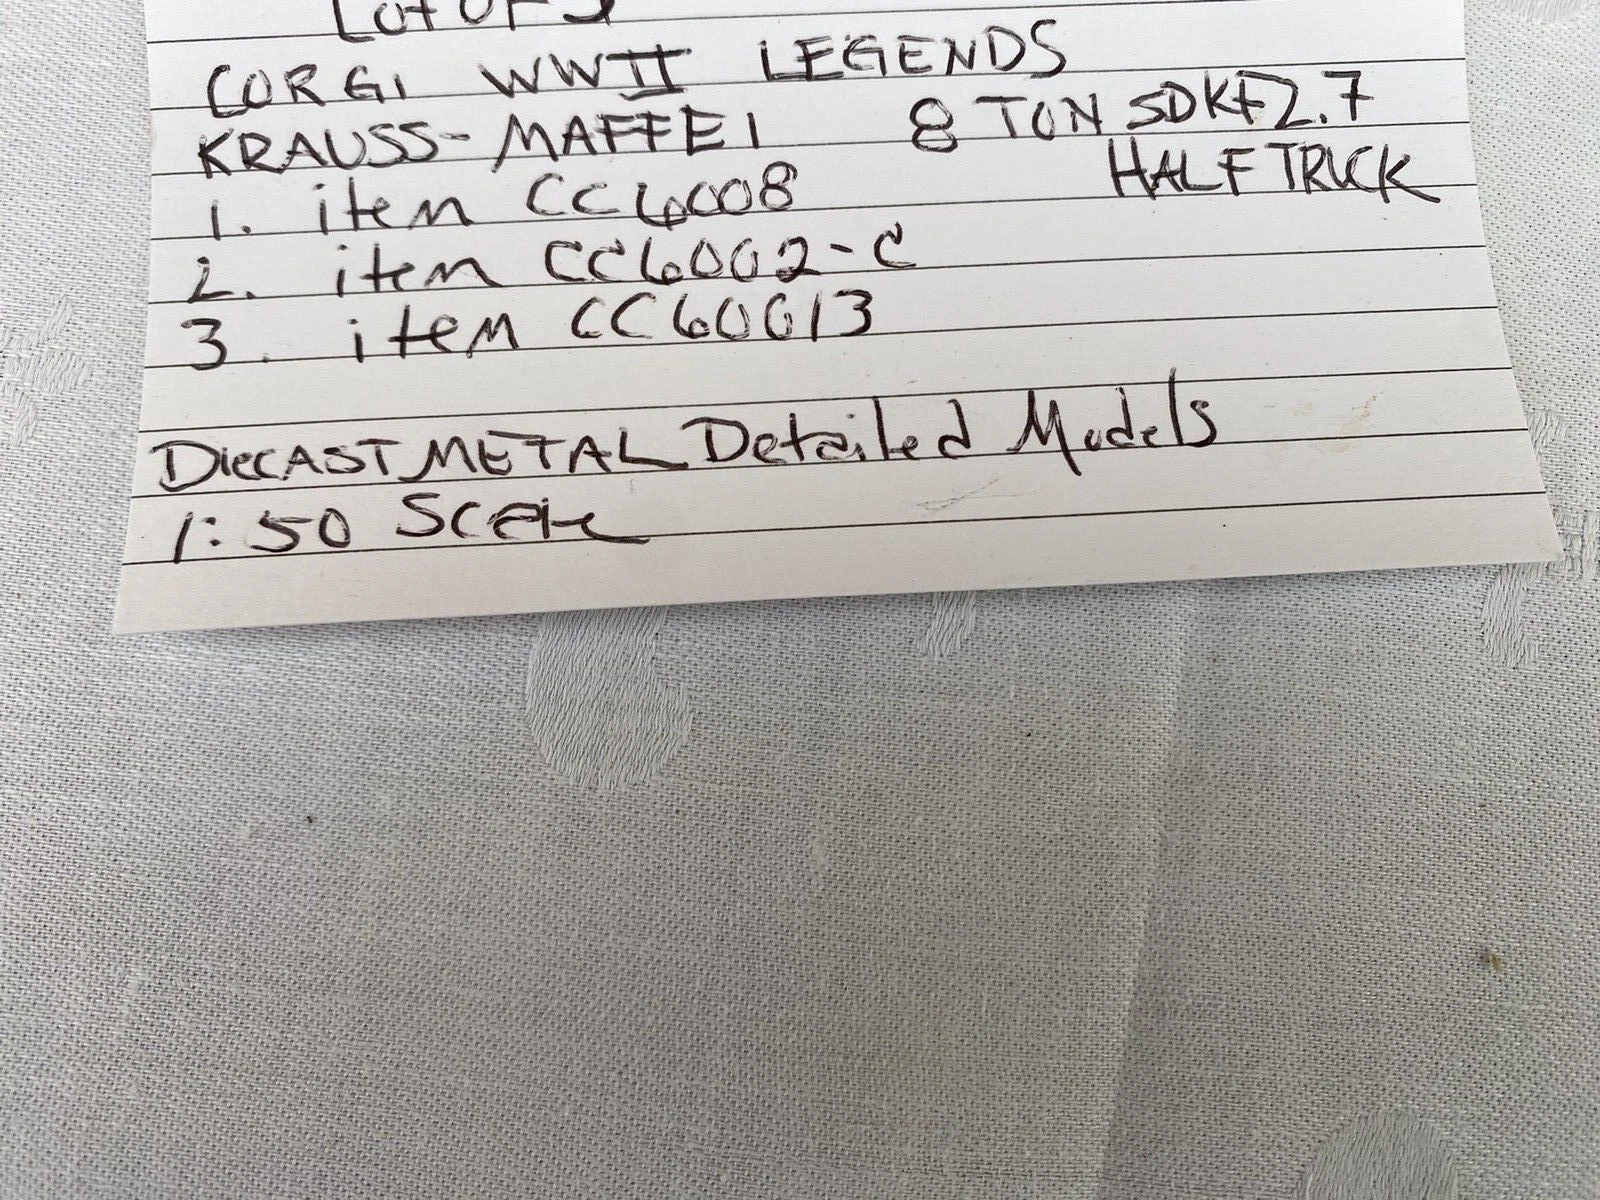 Lot OF 3
CORGI WWII LEGENDS
KRAUSS-MAFFEI 8 TON SDKFZ.7
HALF TRUCK
1. item CC6008
2. item CC6002-C
3. item CC60013
DiecAST METAL Detailed Models
1:50 Scale